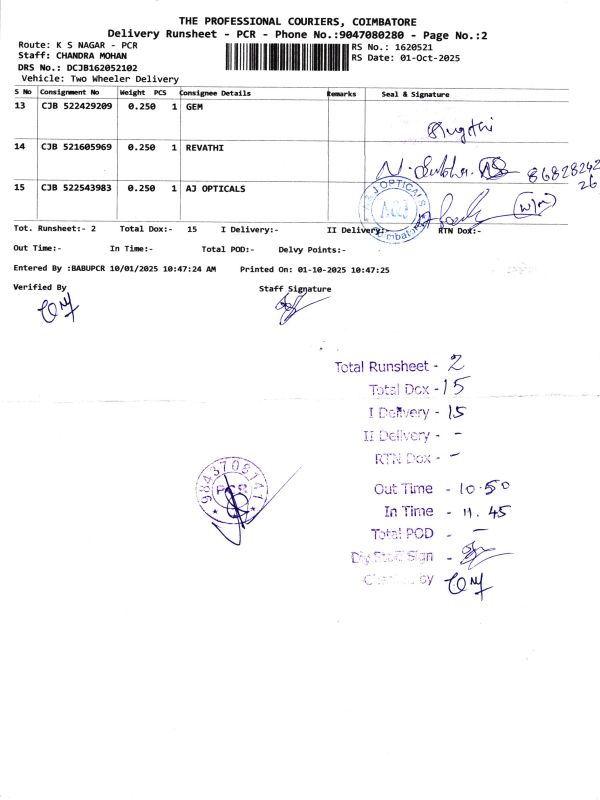 THE PROFESSIONAL COURIERS, COIMBATORE
Delivery Runsheet - PCR - Phone No.:9047080280 - Page No.:2
Route: K S NAGAR - PCR
RS No.: 1620521
Staff: CHANDRA MOHAN
RS Date: 01-Oct-2025
DRS No.: DCJB162052102
Vehicle: Two Wheeler Delivery
S No Consignment No Weight PCS Consignee Details Remarks Seal & Signature
13 CJB 522429209 0.250 1 GEM
14 CJB 521605969 0.250 1 REVATHI
86828242
26
15 CJB 522543983 0.250 1 AJ OPTICALS
A & J OPTICALS
Tot. Runsheet:- 2 Total Dox:- 15 I Delivery:- II Delivery:- RTN Dox:-
Out Time:- In Time:- Total POD:- Delvy Points:-
Entered By :BABUPCR 10/01/2025 10:47:24 AM Printed On: 01-10-2025 10:47:25
Verified By Staff Signature
Total Runsheet - 2
Total Dox - 15
I Delivery - 15
II Delivery - -
RTN Dox - -
Out Time - 10.50
In Time - 11.45
Total POD - -
Dly Staff Sign -
Checked by
9843708141
PCR